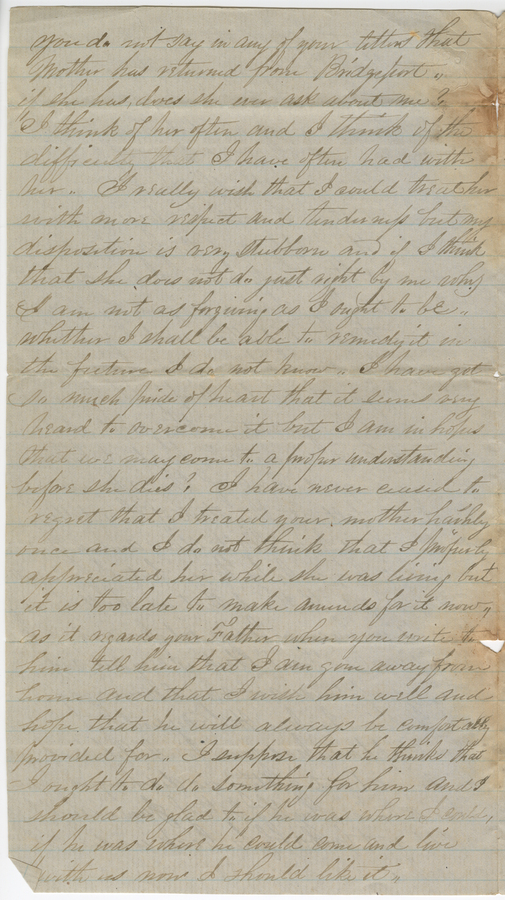 you do not say in any of your letters that
Mother has returned from Bridgeport "
if she has, does she ever ask about me?
I think of her often and I think of the
difficulty that I have often had with
her " I really wish that I could treat her
with more respect and tenderness but my
disposition is very stubborn and if I think
that she does not do just right by me why
I am not as forgiving as I ought to be "
whether I shall be able to remedy it in
the future I do not know " I have got
so much pride of heart that it seems very
heard to overcome it but I am in hopes
that we may come to a proper understanding
before she dies? I have never ceased to
regret that I treated your mother harshly
once and I do not think that I properly
appreciated her while she was living but
it is too late to make amends for it now "
as it regards your Father when you write to
him tell him that I am gone away from
home and that I wish him well and
hope that he will always be comfortably
provided for " I suppose that he thinks that
I ought to do do something for him and I
should be glad to if he was where I could,
if he was where he could come and live
with us now I should like it "